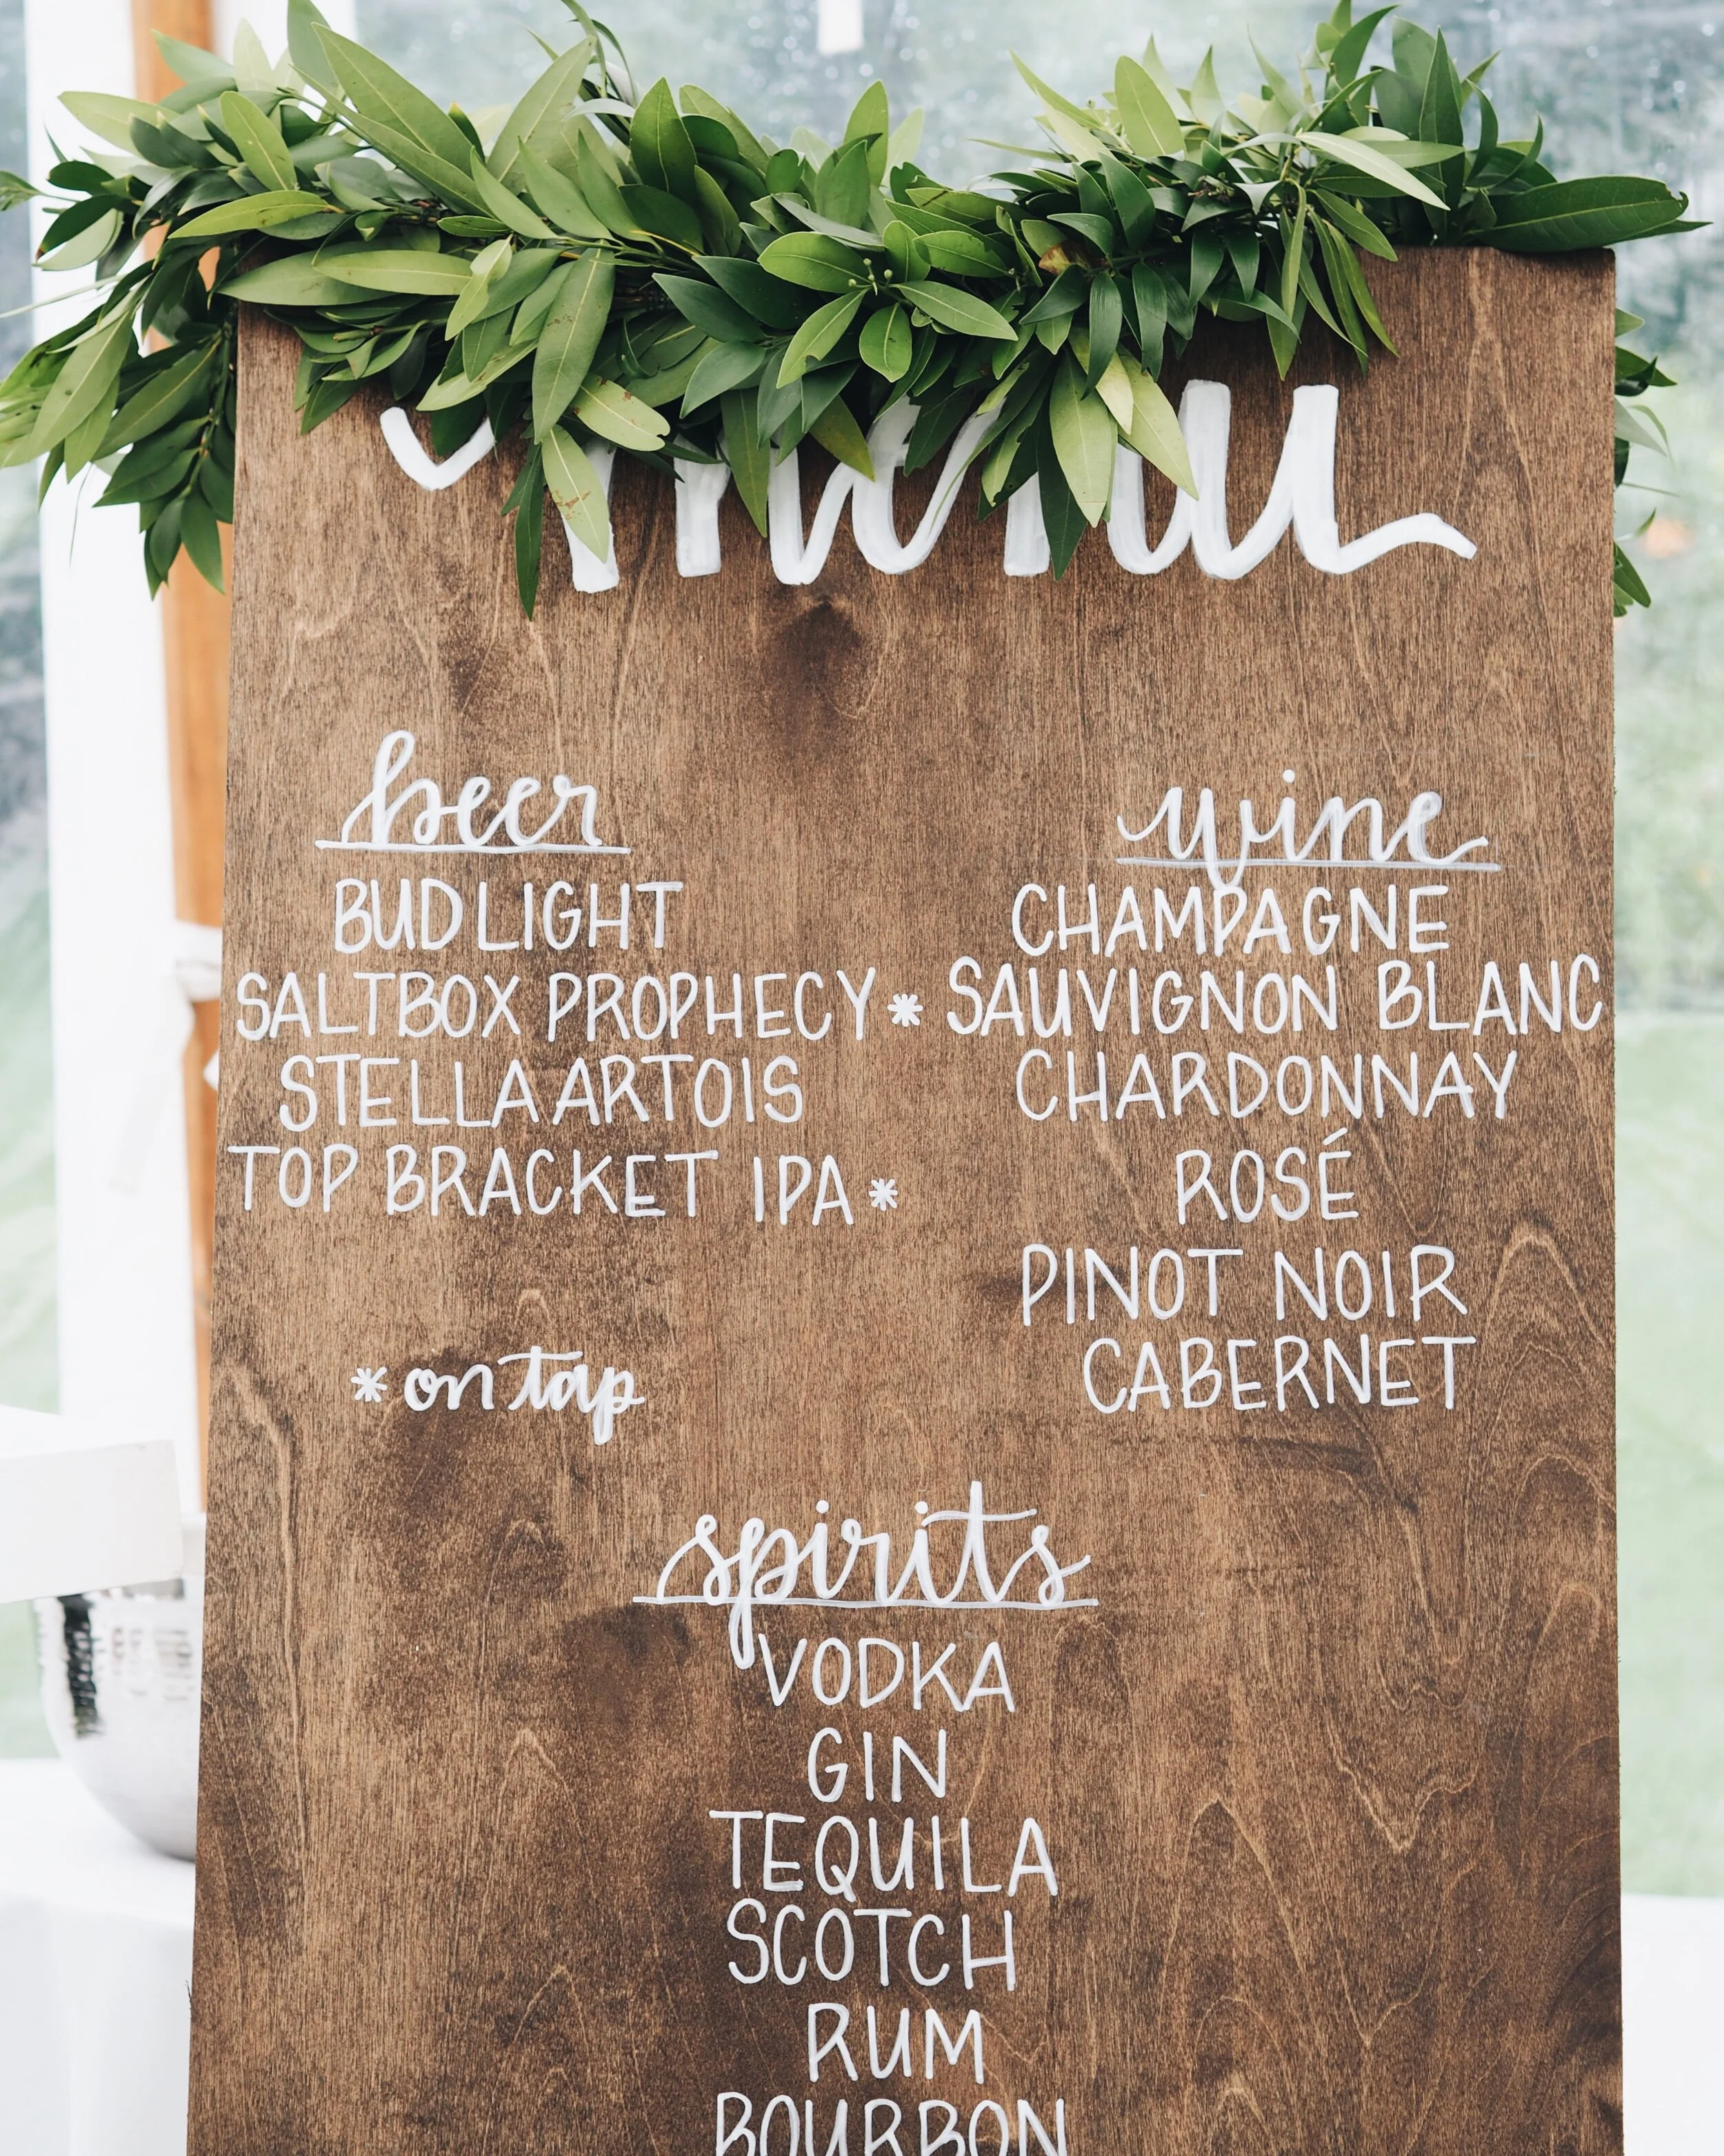 menu
beer
BUD LIGHT
SALTBOX PROPHECY *
STELLA ARTOIS
TOP BRACKET IPA *
* on tap
wine
CHAMPAGNE
SAUVIGNON BLANC
CHARDONNAY
ROSÉ
PINOT NOIR
CABERNET
spirits
VODKA
GIN
TEQUILA
SCOTCH
RUM
BOURBON